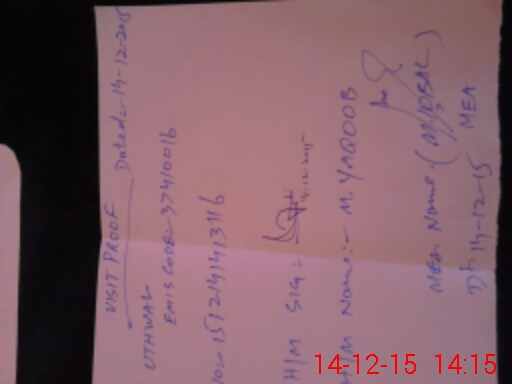 VISIT PROOF Dated:- 14-12-2015
UTHWAL
EMIS CODE:- 37410016
No:- 1512141413716
H/M SIG:-
14-12-2015
H/M Name:- M. YAQOOB
MEA Name. (M. IQBAL)
Dt 14-12-15 MEA
14-12-15 14:15